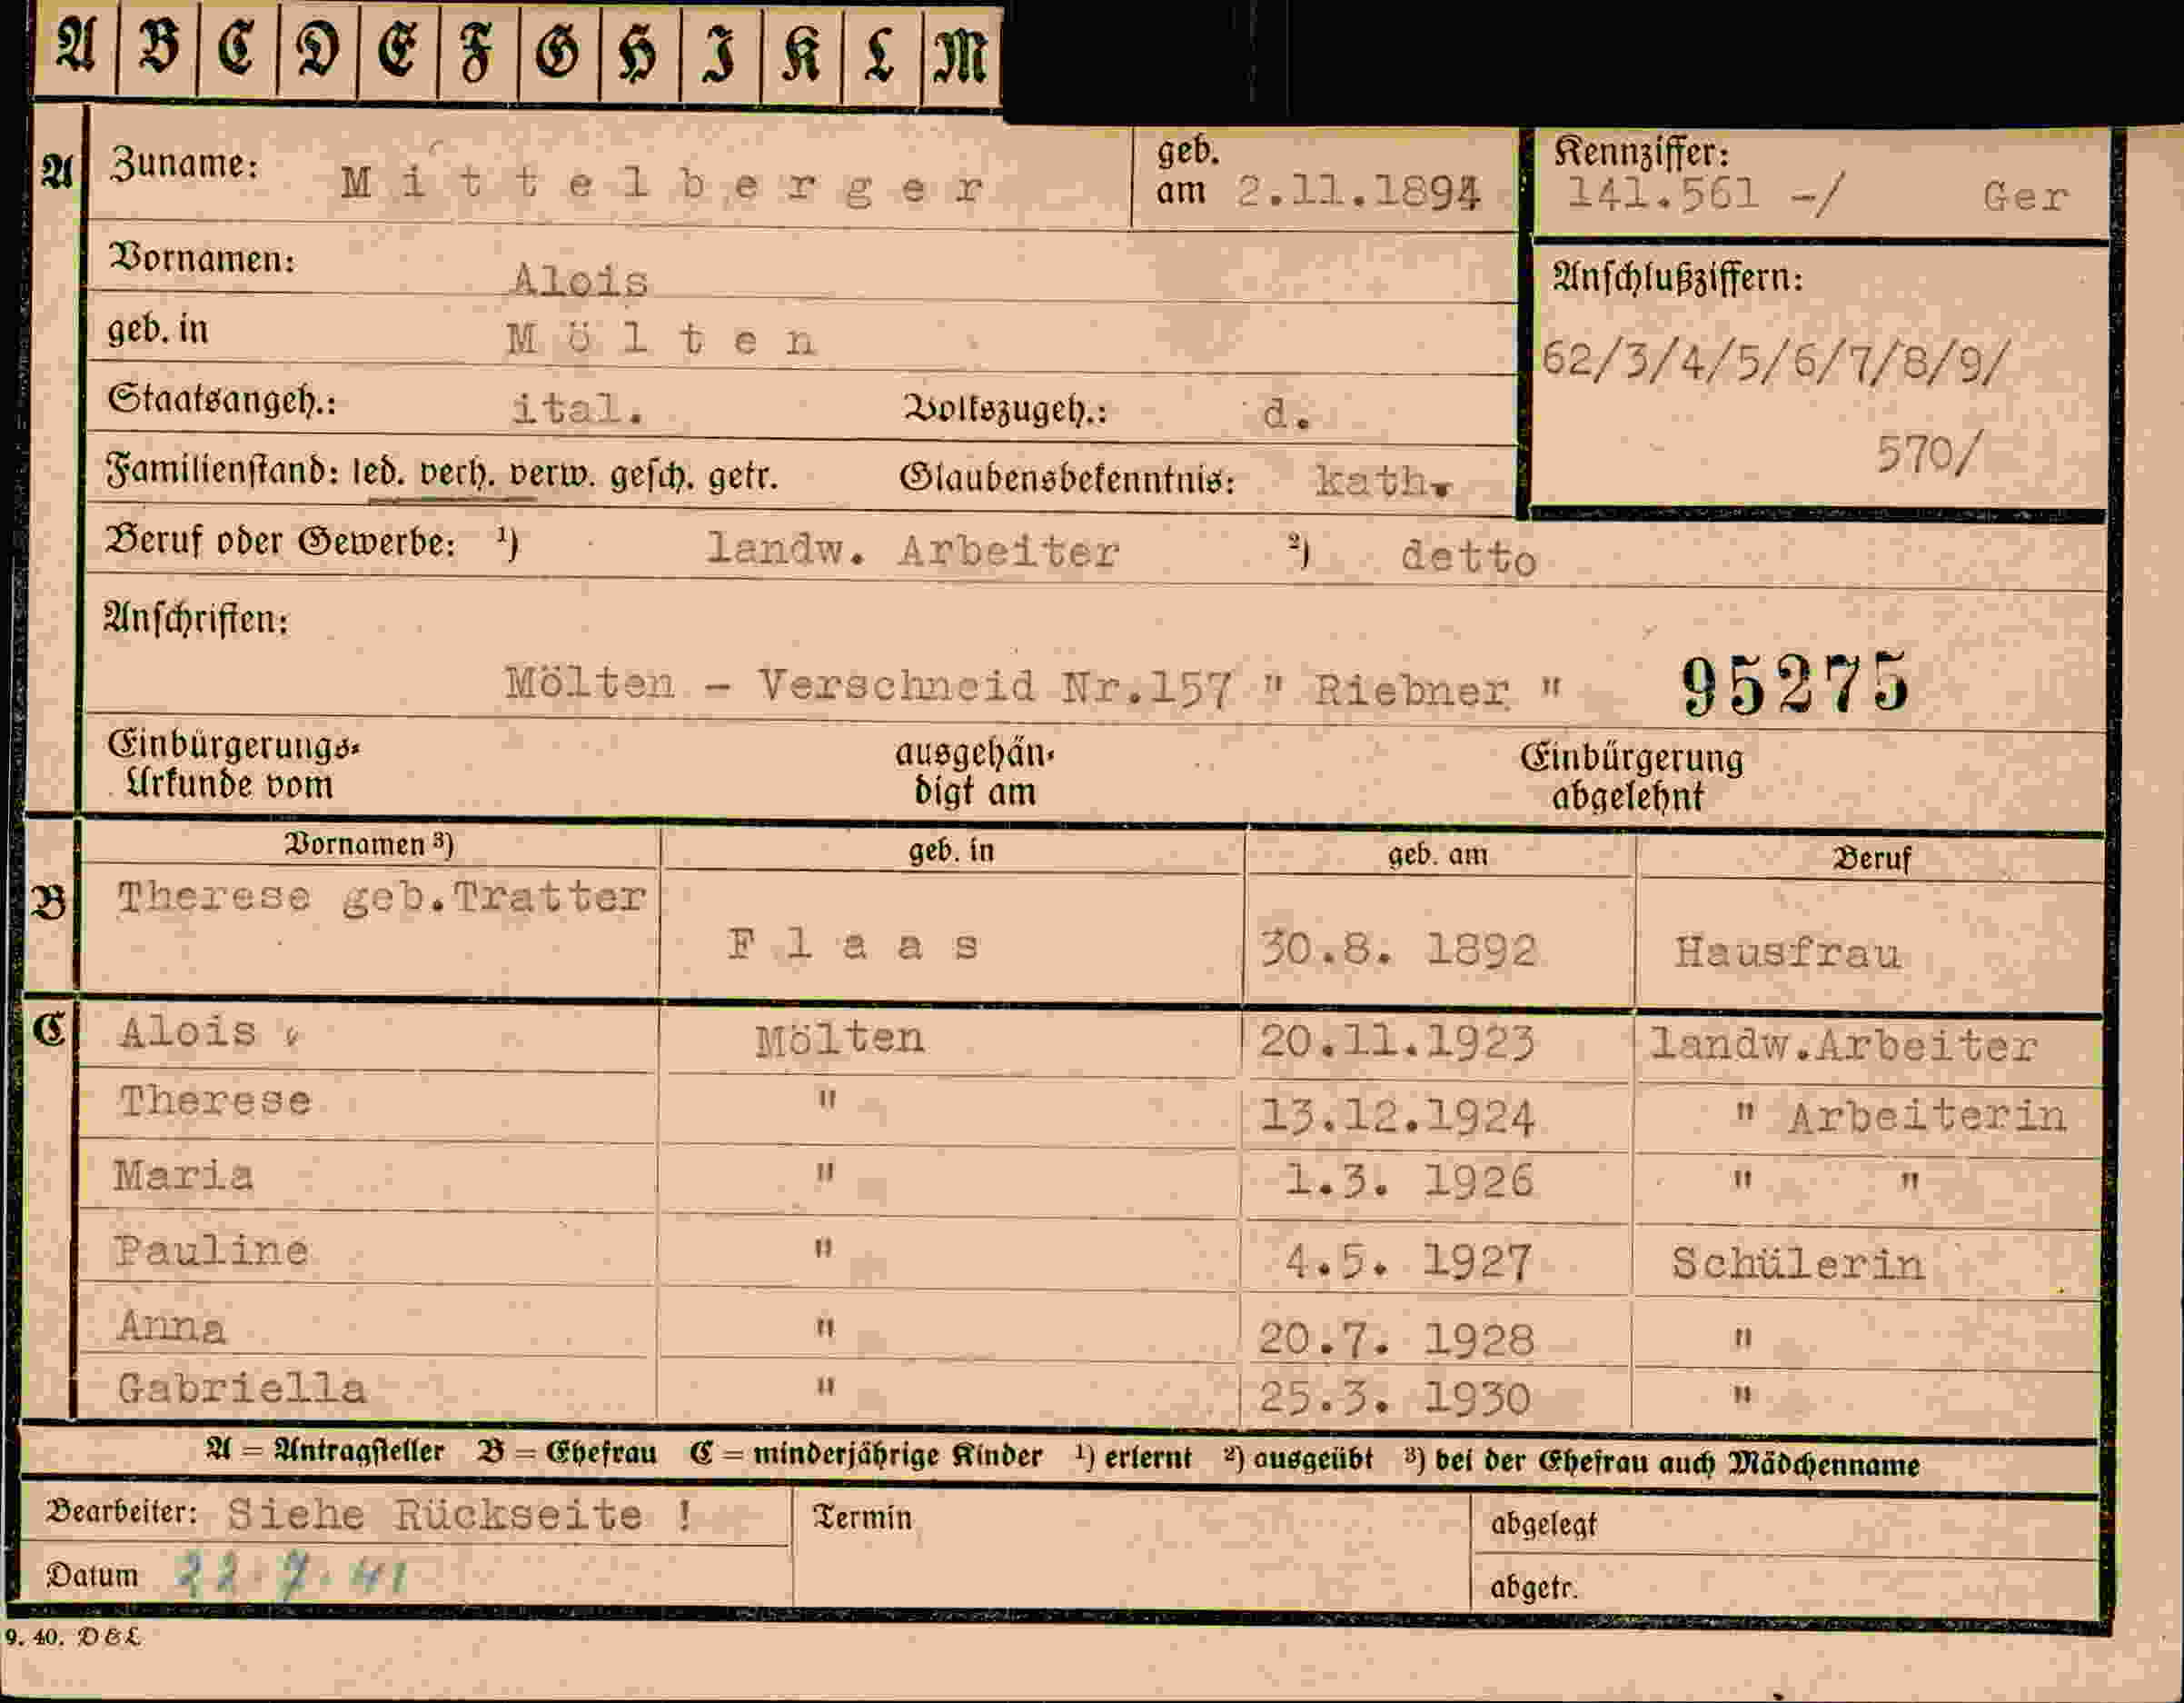 A B C D E F G H I K L M
A Zuname: Mittelberger geb. am 2.11.1894 Kennziffer: 141.561 -/ Ger
Vornamen: Alois
Anschlußziffern:
geb. in Mölten
62/3/4/5/6/7/8/9/
Staatsangeh.: ital. Volkszugeh.: d.
570/
Familienstand: led. verh. verw. gesch. getr. Glaubensbekenntnis: kath.
Beruf oder Gewerbe: ¹) landw. Arbeiter ²) detto
Anschriften:
Mölten - Verschneid Nr.157 " Riebner " 95275
Einbürgerungs- ausgehän- Einbürgerung
Urkunde vom digt am abgelehnt
Vornamen ³) geb. in geb. am Beruf
B Therese geb.Tratter
Flaas 30.8. 1892 Hausfrau
C Alois Mölten 20.11.1923 landw.Arbeiter
Therese " 13.12.1924 " Arbeiterin
Maria " 1.3. 1926 " "
Pauline " 4.5. 1927 Schülerin
Anna " 20.7. 1928 "
Gabriella " 25.3. 1930 "
A = Antragsteller B = Ehefrau C = minderjährige Kinder ¹) erlernt ²) ausgeübt ³) bei der Ehefrau auch Mädchenname
Bearbeiter: Siehe Rückseite ! Termin abgelegt
Datum 22.7.41 abgetr.
9. 40. D&L